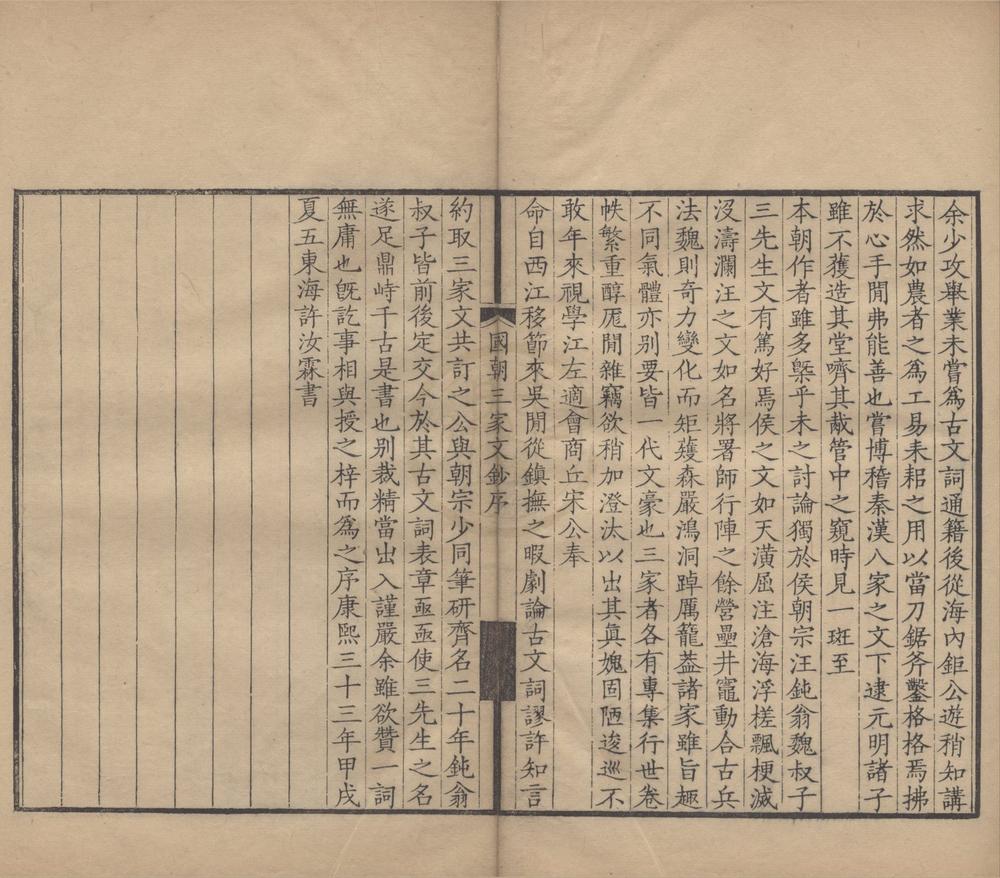 余少攻舉業未嘗爲古文詞通籍後從海內鉅公遊稍知講
求然如農者之爲工易耒耜之用以當刀鋸斧鑿格格焉拂
於心手閒弗能善也嘗博稽秦漢八家之文下逮元明諸子
雖不獲造其堂嚌其胾管中之窺時見一斑至
本朝作者雖多槩乎未之討論獨於侯朝宗汪鈍翁魏叔子
三先生文有篤好焉侯之文如天潢屈注滄海浮槎飄梗滅
沒濤瀾汪之文如名將署師行陣之餘營壘井竈動合古兵
法魏則奇力變化而矩矱森嚴鴻洞踔厲籠葢諸家雖旨趣
不同氣體亦别要皆一代文豪也三家者各有專集行世卷
帙繁重醇厖閒雜竊欲稍加澄汰以出其眞媿固陋逡巡不
敢年來視學江左適會商丘宋公奉
命自西江移節來吳閒從鎮撫之暇劇論古文詞謬許知言
國朝三家文鈔序
約取三家文共訂之公與朝宗少同筆研齊名二十年鈍翁
叔子皆前後定交今於其古文詞表章亟亟使三先生之名
遂足鼎峙千古是書也别裁精當出入謹嚴余雖欲贊一詞
無庸也旣訖事相與授之梓而爲之序康熙三十三年甲戌
夏五東海許汝霖書